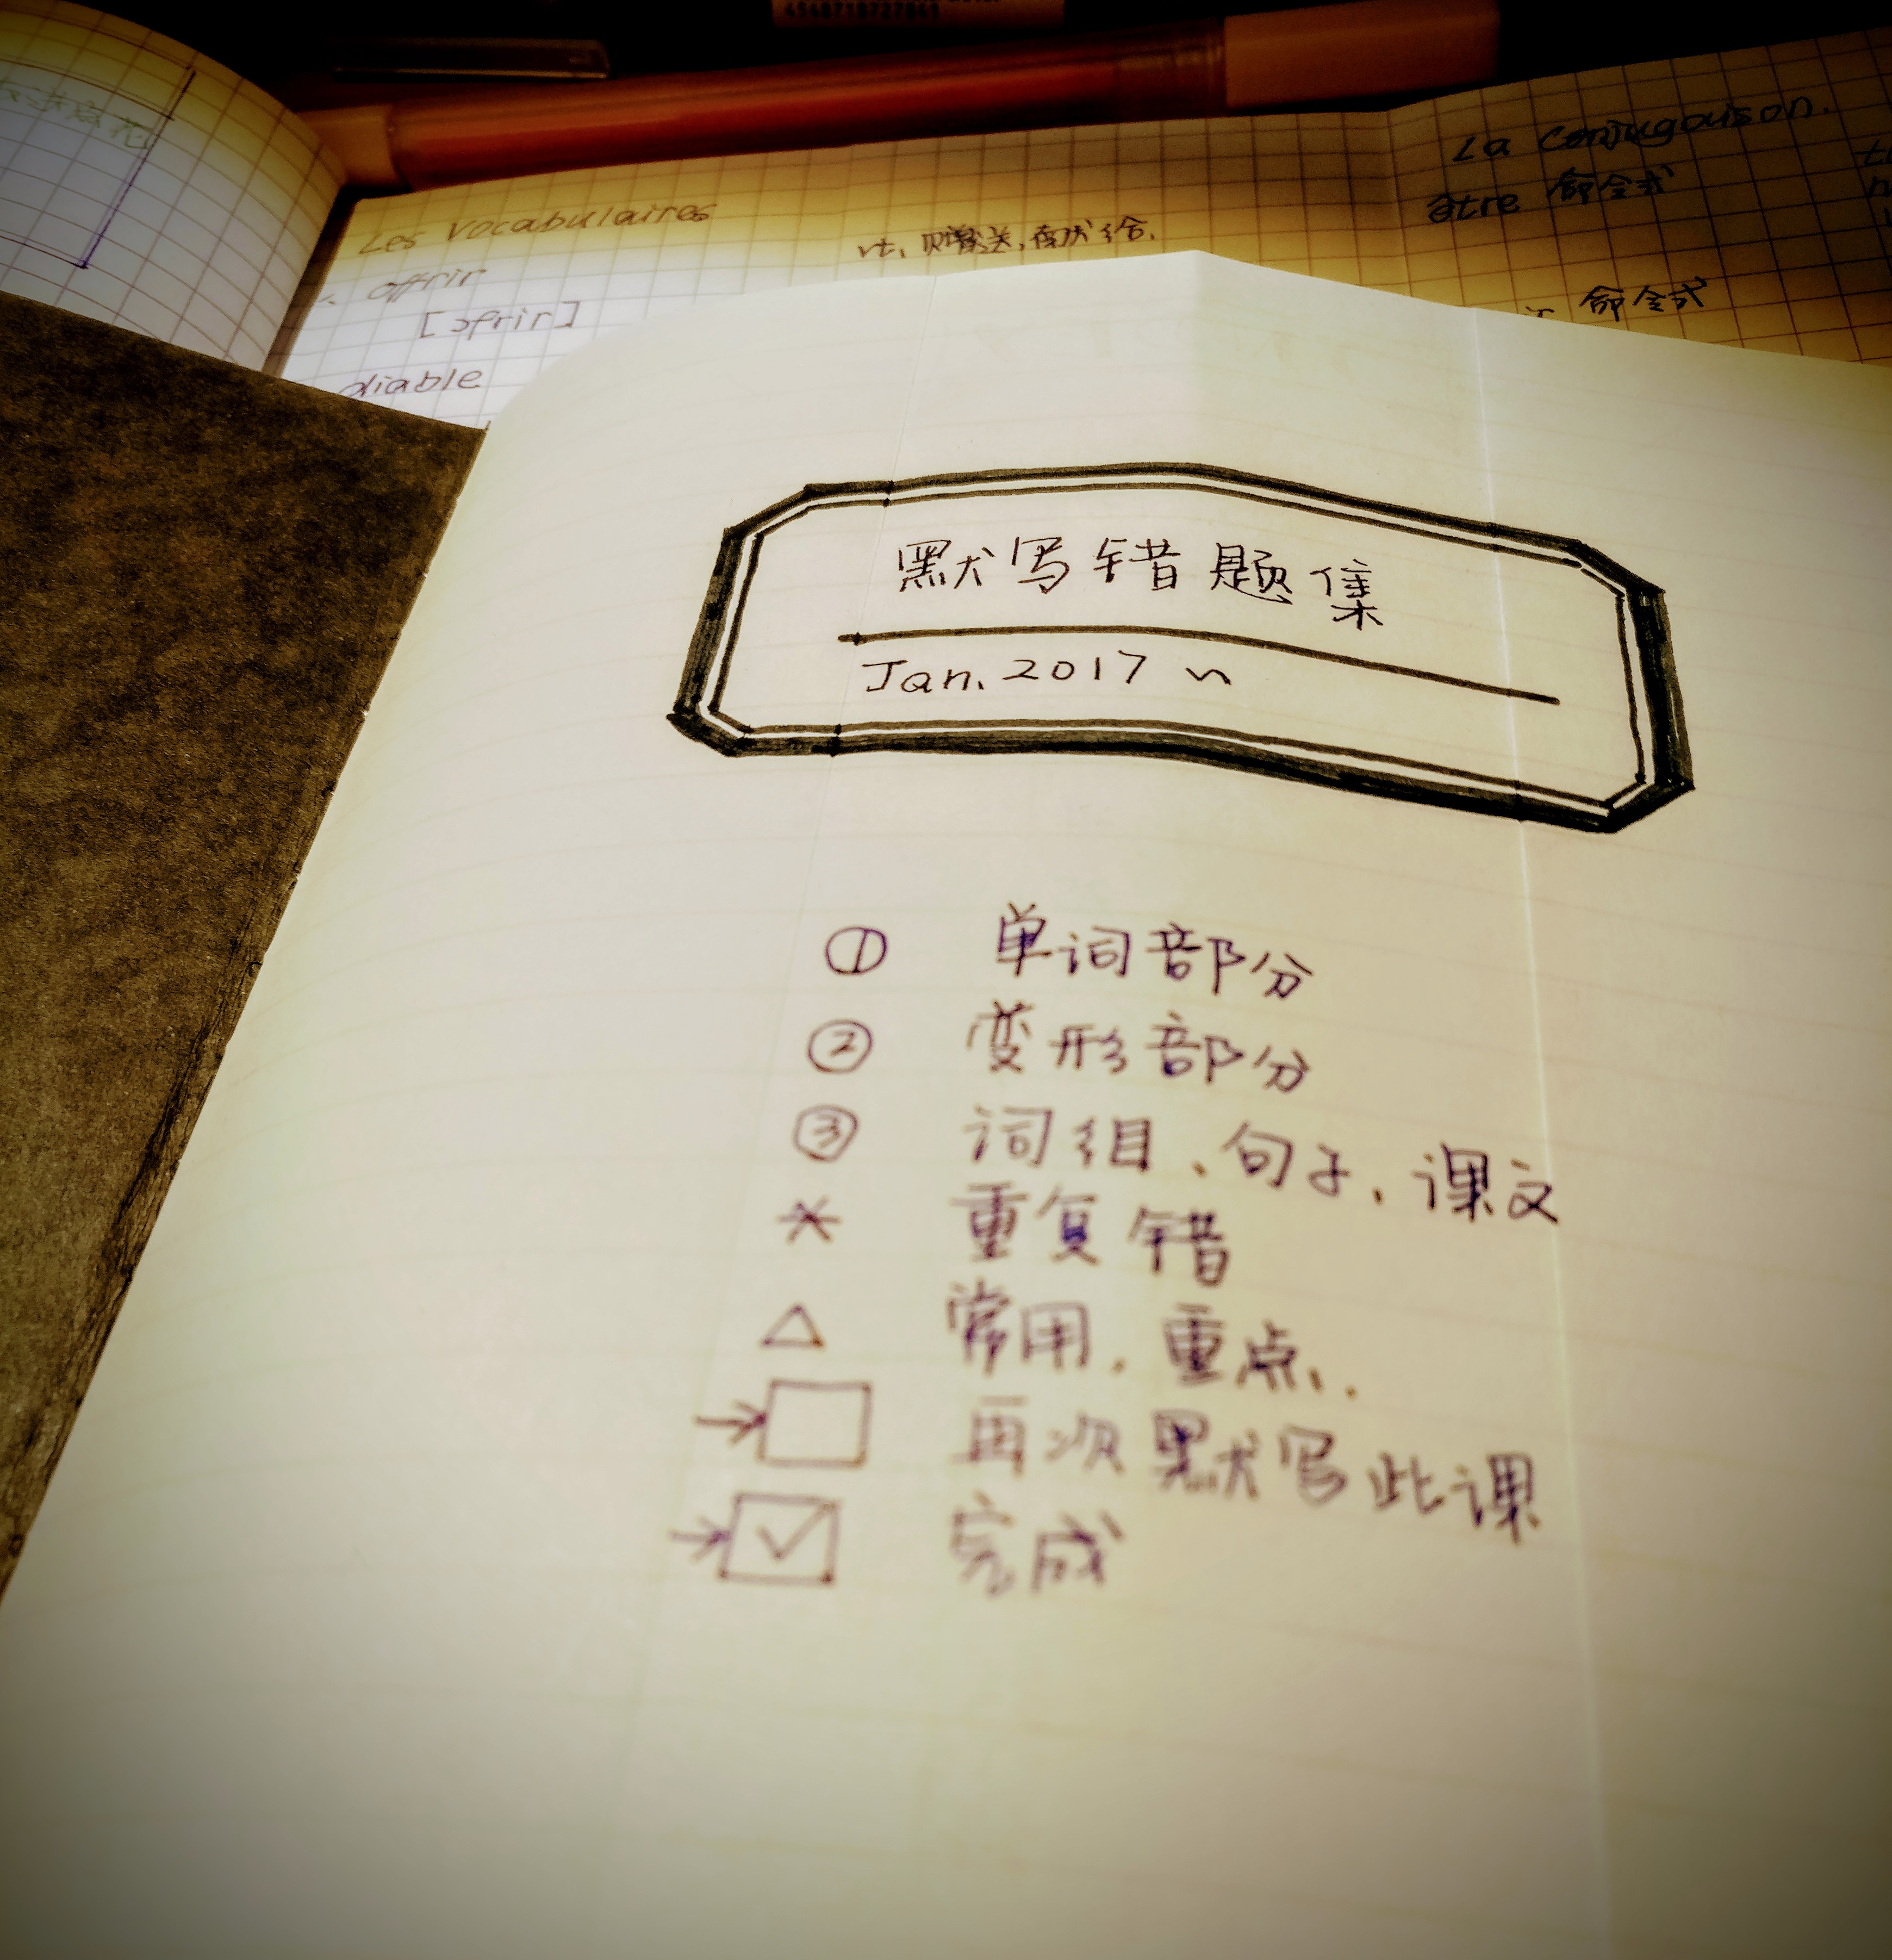 4548718727849
Les vocabulaires
offrir
[ɔfrir]
diable
vt. 赠送,献给.
La Conjugaison.
être 命令式
命令式
默写错题集
Jan. 2017 ~
① 单词部分
② 变形部分
③ 词组、句子、课文
* 重复错
△ 常用、重点、.
→□ 再次默写此课
→☑ 完成